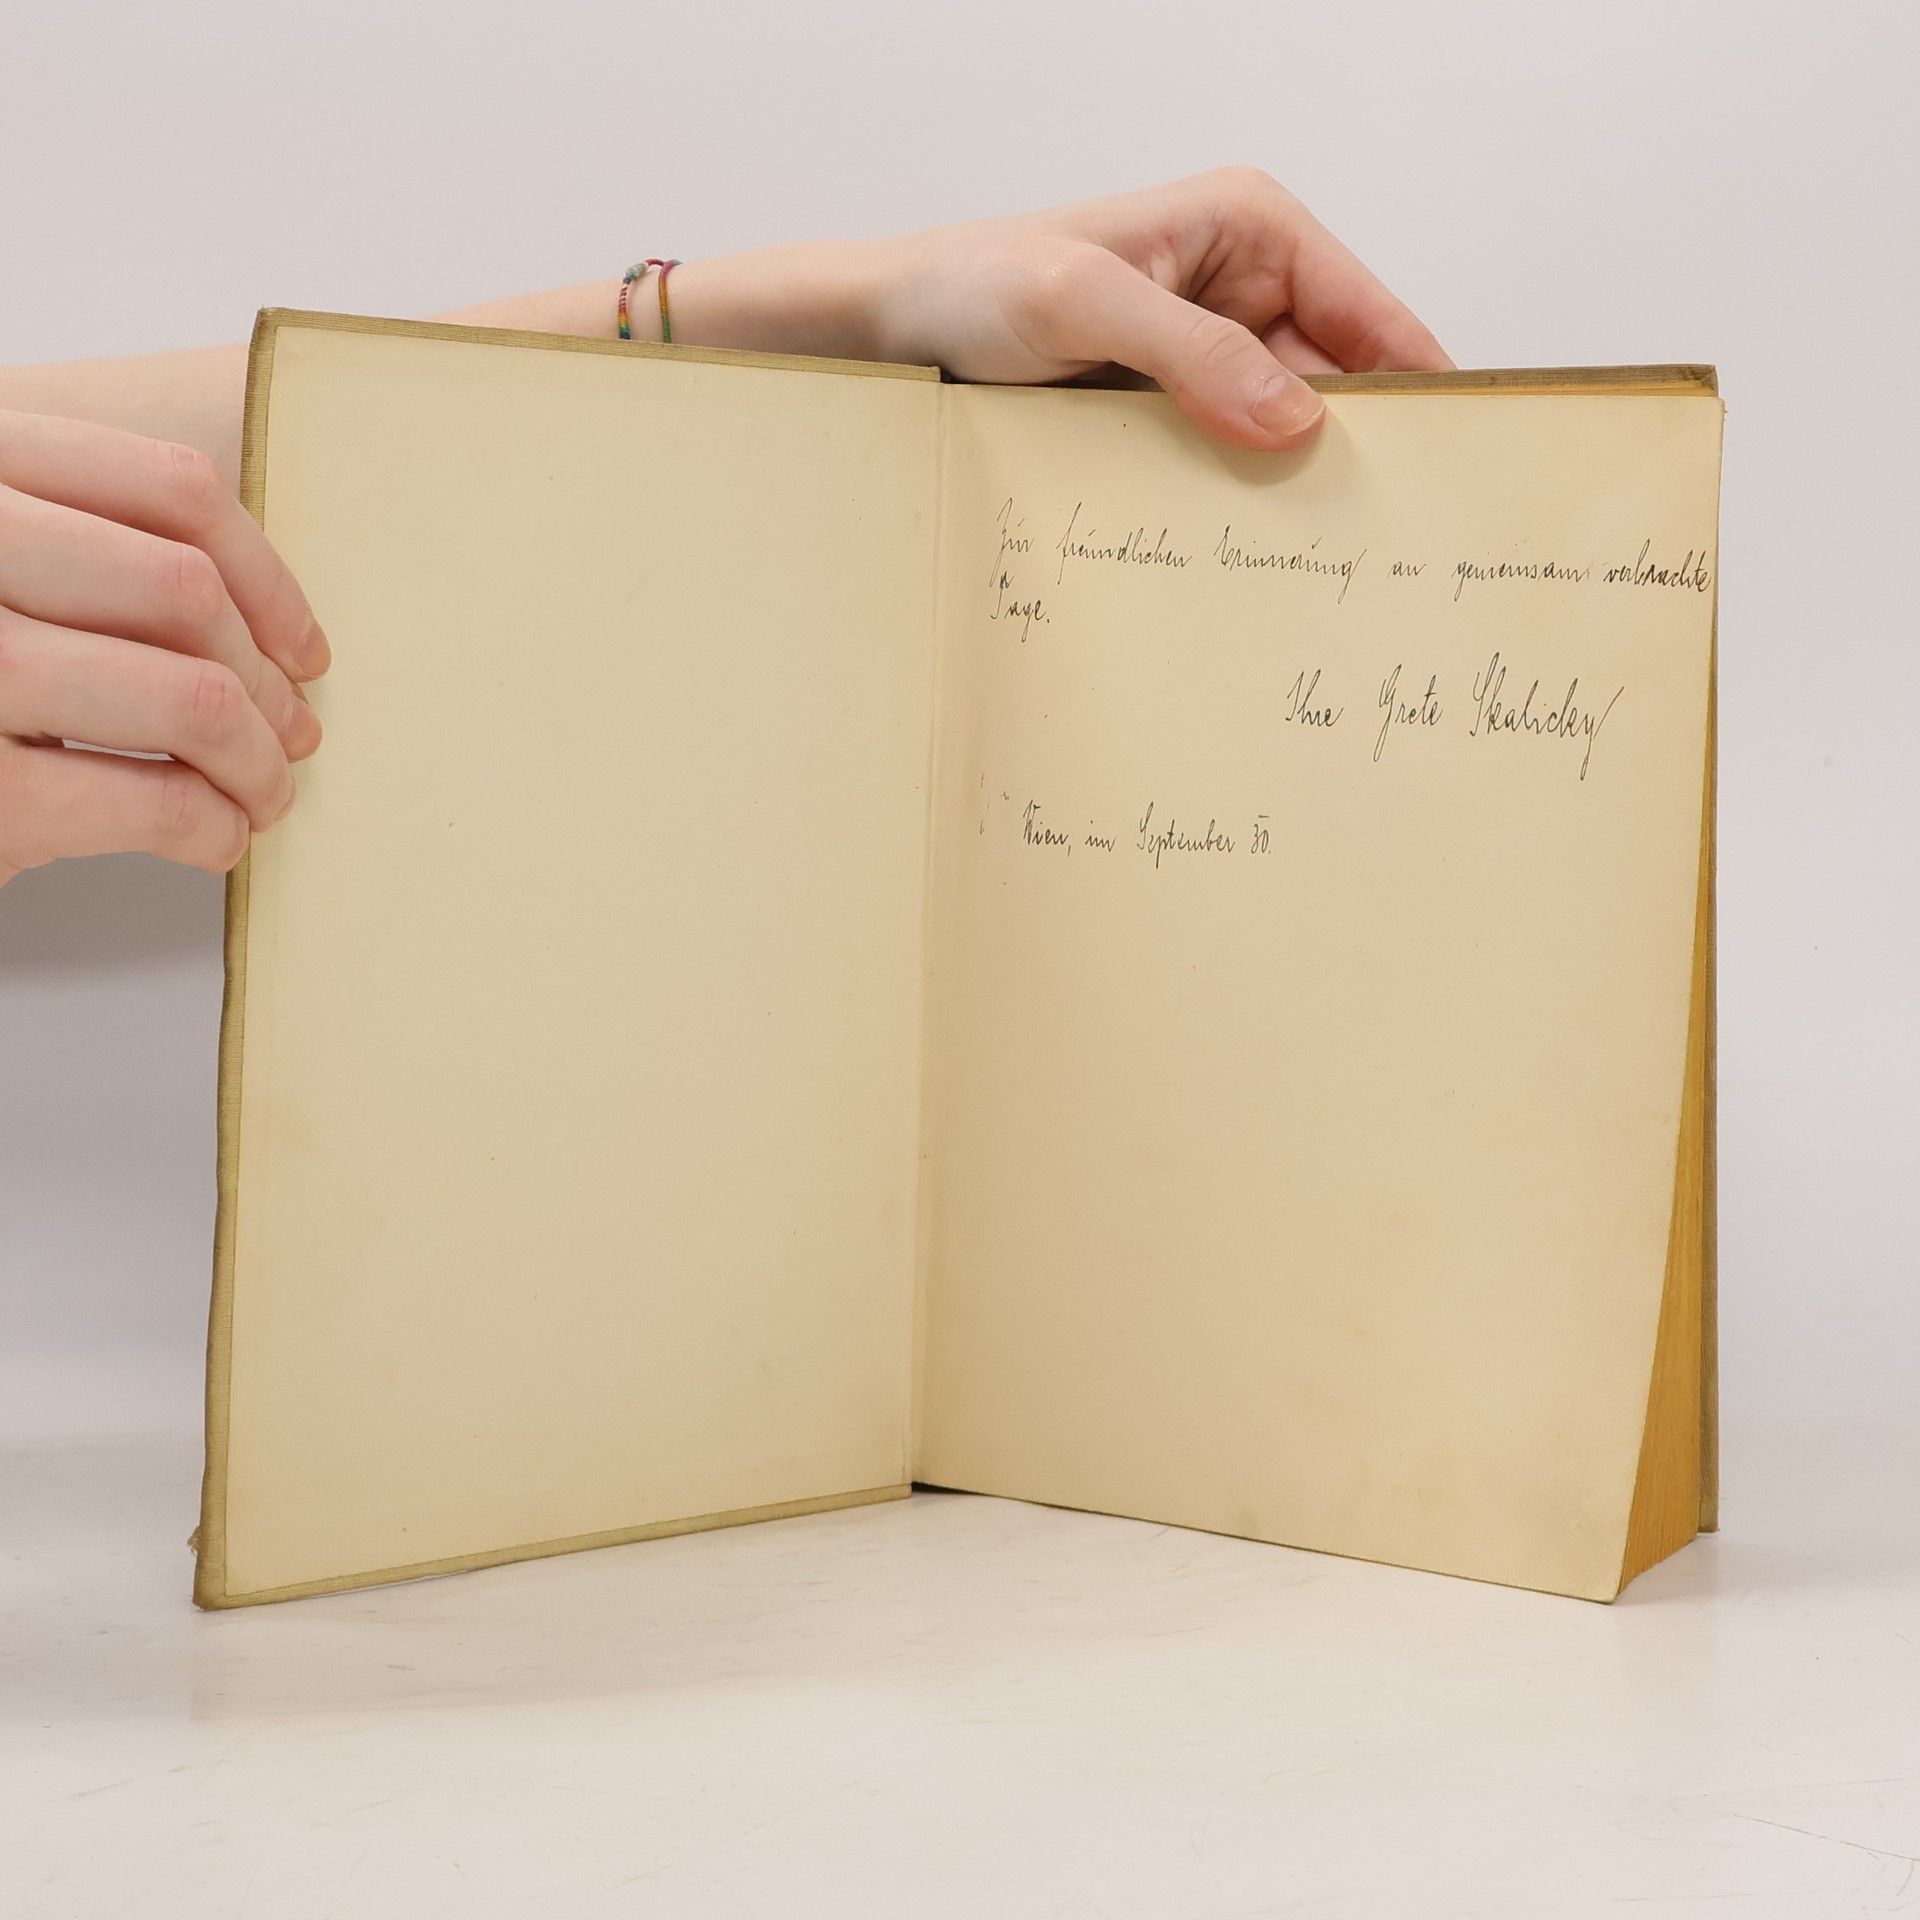 Zur freundlichen Erinnerung an gemeinsam verbrachte
Tage.
Ihre Grete Skalicky
Wien, im September 30.